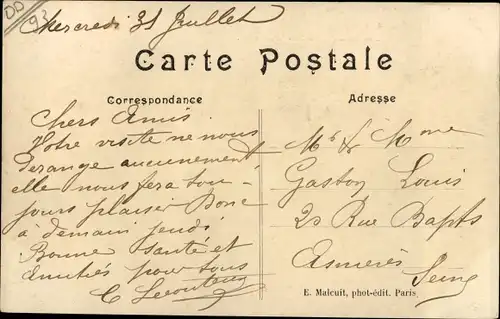 DD
92
Mercredi 31 Juillet
Carte Postale
Correspondance
Adresse
Chers Amis
Votre visite ne nous
derange aucunement
elle nous fera tou-
jours plaisir Donc
à demain jeudi
Bonne Santé et
amitiés pour tous
C Lecouteux
Mr & Mme
Gaston Louis
20 Rue Bapts
Asnieres
Seine
E. Malcuit, phot-édit. Paris